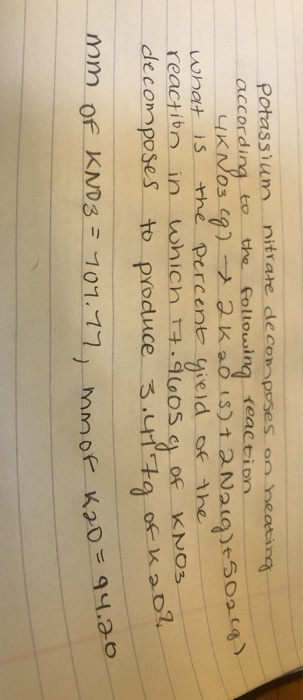 potassium nitrate decomposes on heating
according to the following reaction
4KNO3 (g) → 2K2O (s) + 2N2(g) + 5O2(g)
what is the percent yield of the
reaction in which 17.9605 g of KNO3
decomposes to produce 3.4177g of K2O?
mm of KNO3 = 101.11, mm of K2O = 94.20